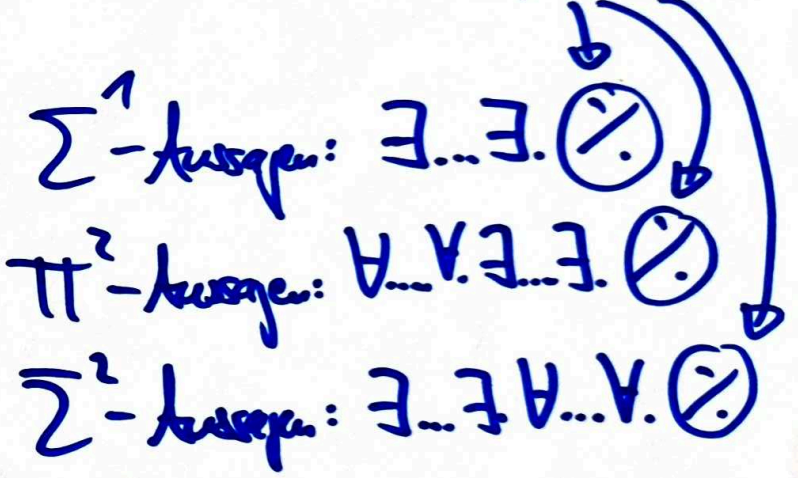 Σ¹-Aussagen: ∃...∃. ⁒
Π²-Aussagen: ∀...∀.∃...∃. ⁒
Σ²-Aussagen: ∃...∃.∀...∀. ⁒